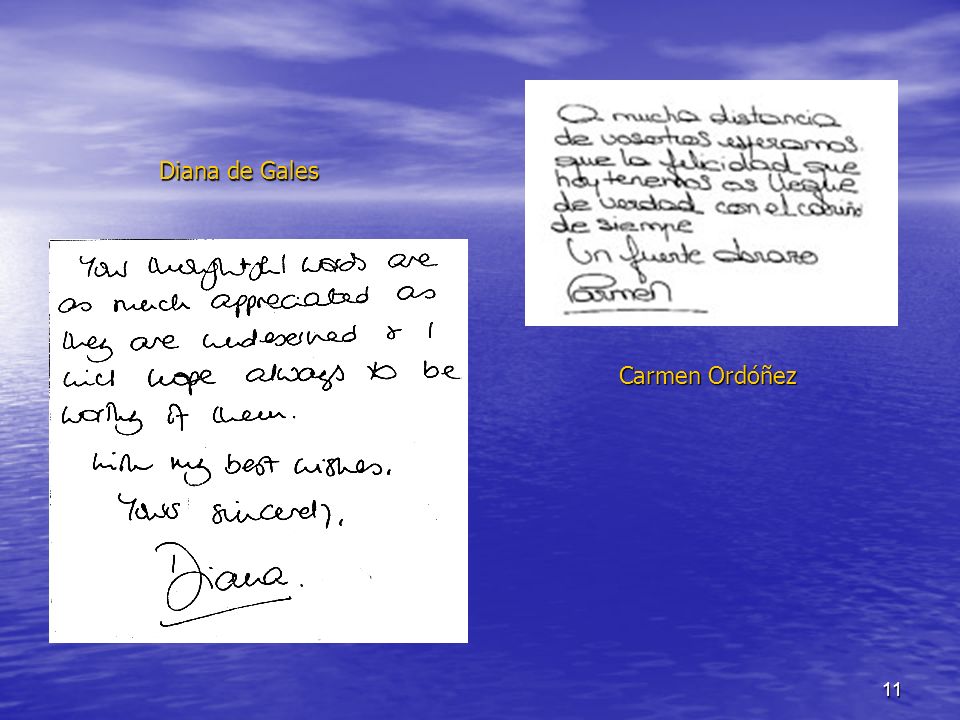 Diana de Gales
Your thoughtful words are
as much appreciated as
they are undeserved & I
will hope always to be
worthy of them.
With my best wishes.
Yours sincerely,
Diana.
A mucha distancia
de vosotros esperamos
que la felicidad que
hoy tenemos os llegue
de verdad con el cariño
de siempre
Un fuerte abrazo
Carmen
Carmen Ordóñez
11